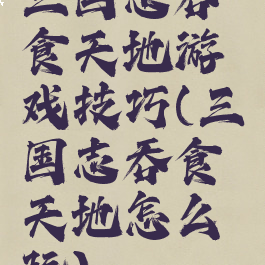 三国志吞
食天地游
戏技巧(三
国志吞食
天地怎么
玩)